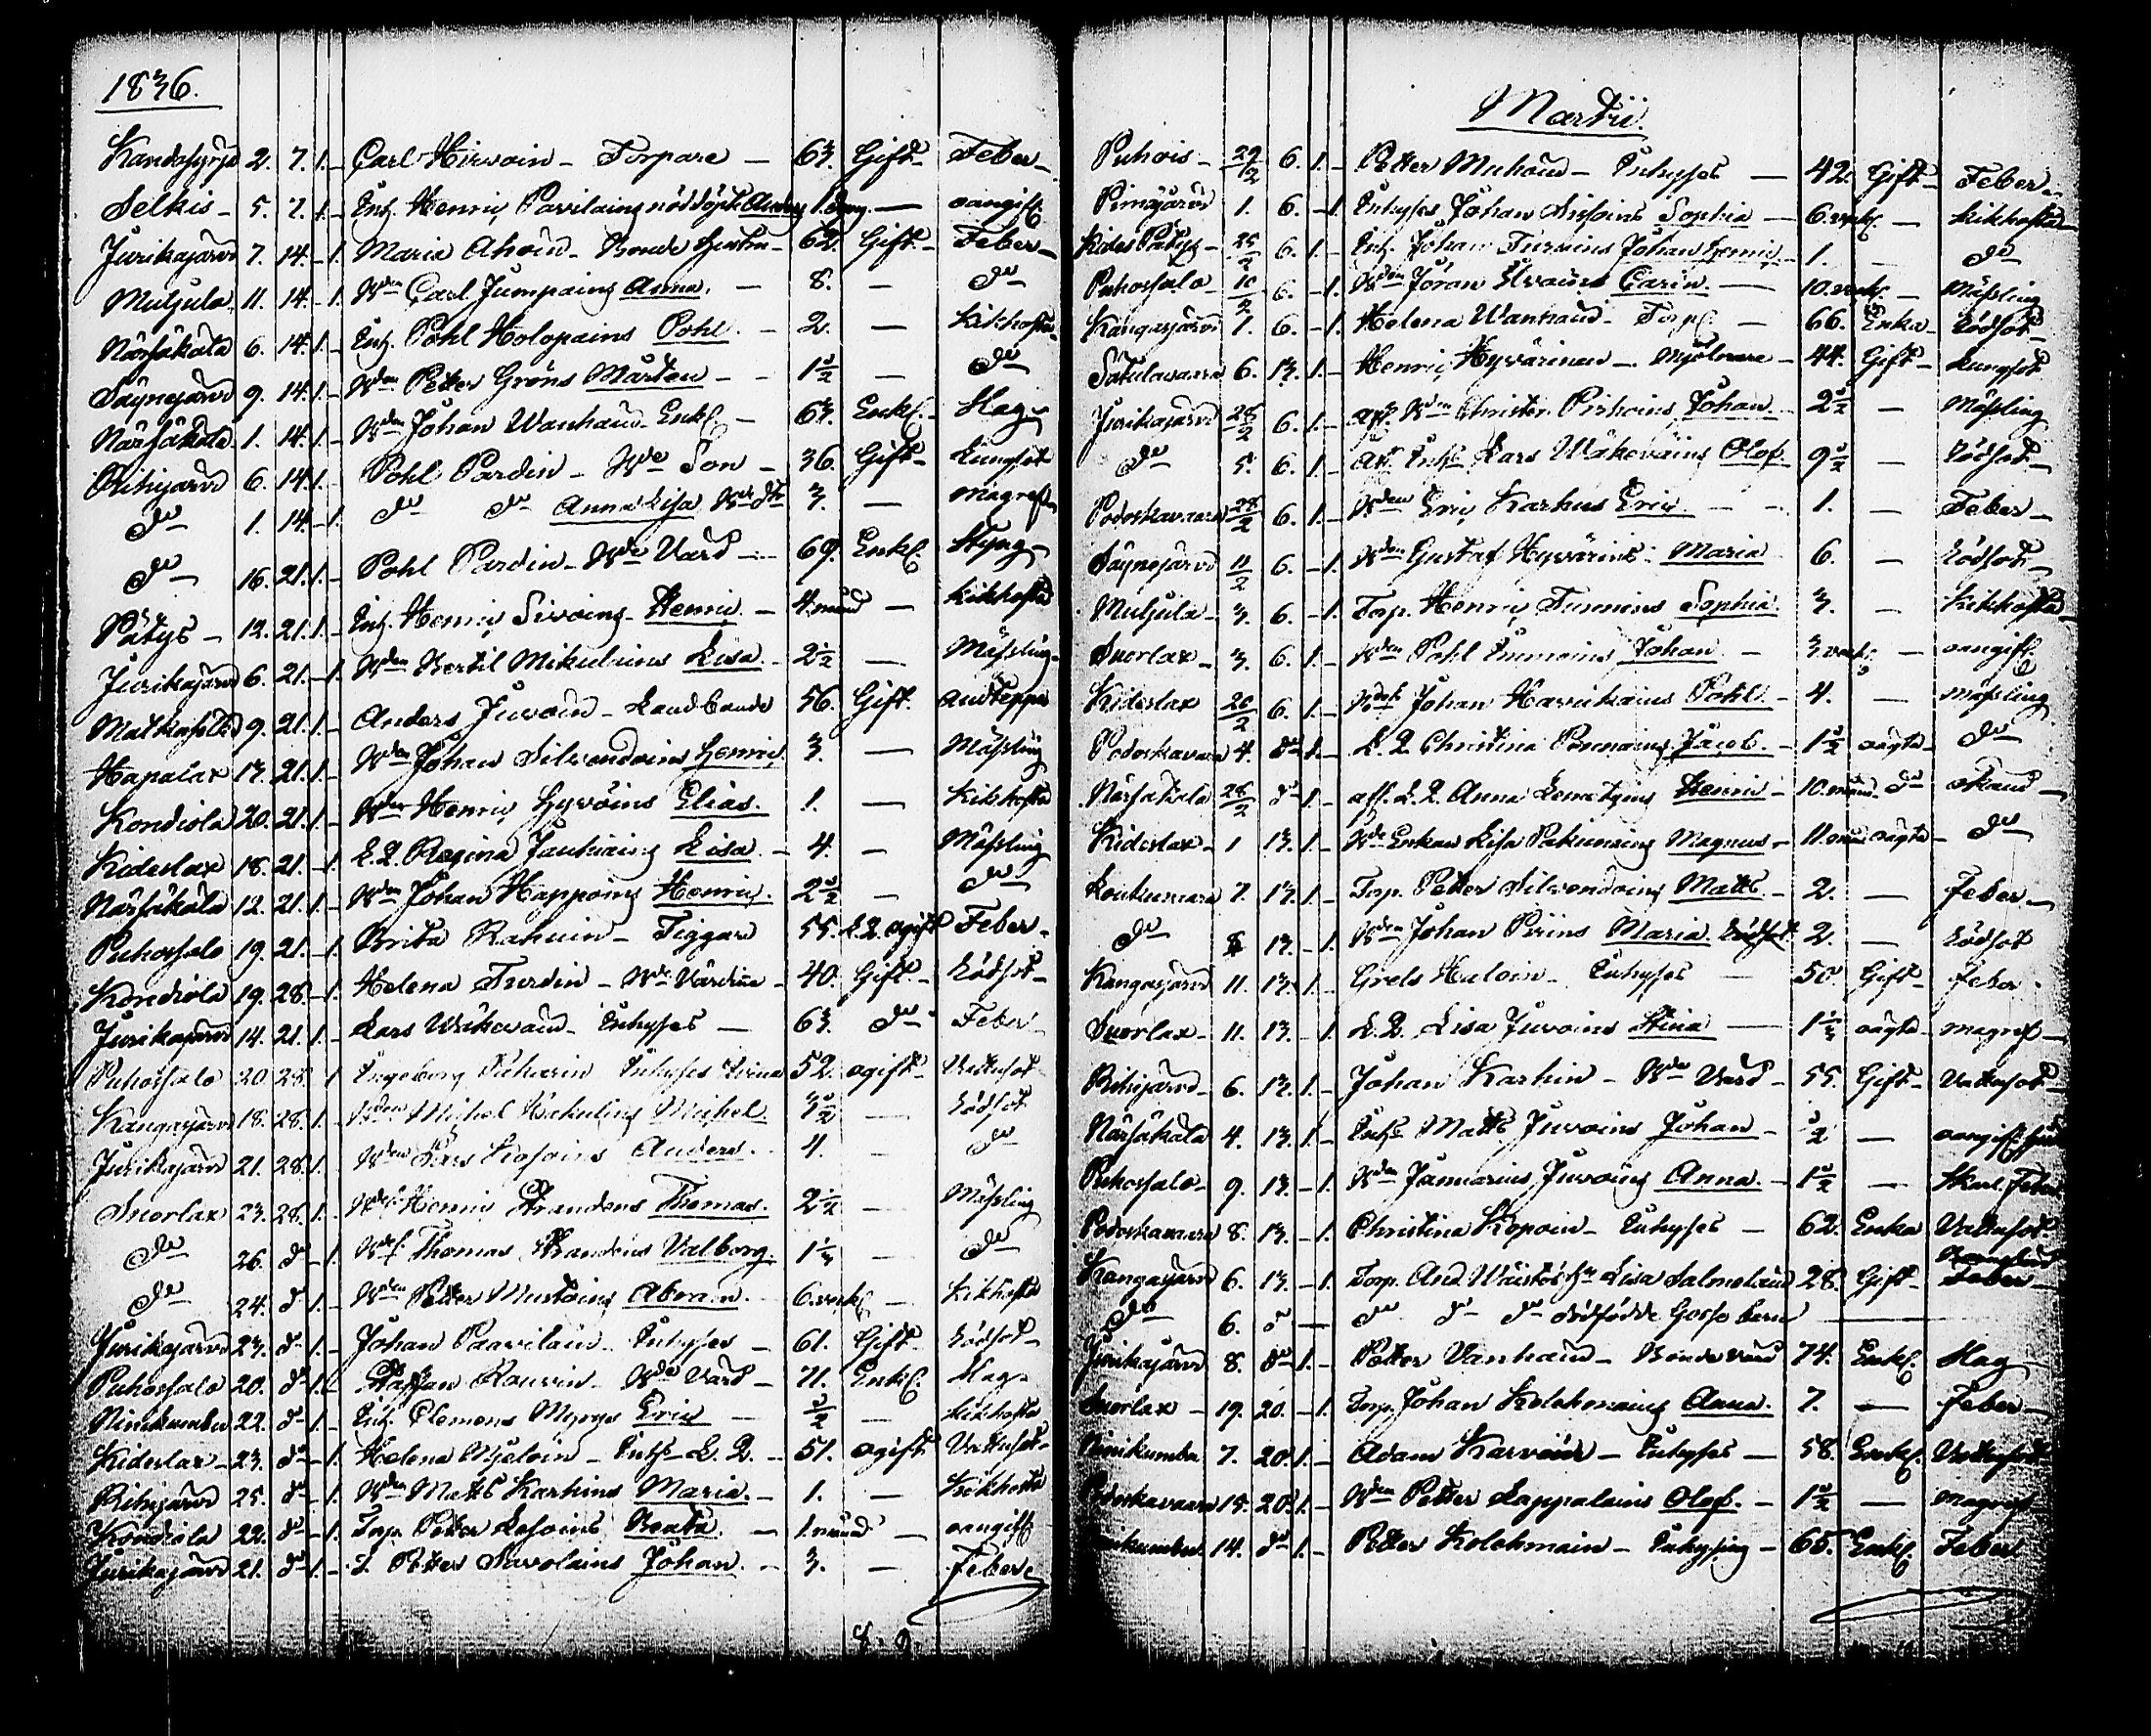 1836.
Kandosyrjä 2. 7. 1. – Carl Hirvoin – Torpare – 63. Gift – Feber –
Selkis – 5. 7. 1. – Inh. Henric Pavilains nöddöpt. 1. dag. – oangif.
Jurikajärvi 7. 14. – 1. Maria Ahoin – Bonde hustru – 62. Gift – Feber –
Muljula 11. 14. – 1. Bden Carl Jumpains Anna. – 8. – do
Närsäkälä 6. 14. 1. – Inh. Pohl Holopains Pohl. – 2. – Kikhosta
Säynejärvi 9. 14. 1. – Bden Petter Gröns Mårten – 1 ½ – do
Närsäkälä 1. 14. 1. – Bden Johan Wanhain Enkl. – 63. Enkl. – Slag –
Rihijärvi 6. 14. 1. Pohl Pardin – Bde Son – 36. Gift – Lungsot
do 1. 14. – 1. do do Anna Lisa Bde dtr 3. – magref
do 16. 21. 1. – Pohl Pardin – Bde Värd – 69. Enkl. Styng –
Pätys – 12. 21. 1. – Inh. Henric Sivoins Henric. – 4. månd – Kikhosta
Jurikajärvi 6. 21. – 1. Bden Bertil Mikulains Lisa. – 2 ½ – Mässling –
Matkaselkä 9. 21. 1. – Anders Juvoin – Landbonde 56. Gift. andteppa
Hapalax 13. 21. 1. – Bden Johan Silvendoins Henric. 3. – Mässling
Kondiola 20. 21. 1. – Bden Henric Hyvöins Elias. 1. – Kikhosta
Kideslax 18. 21. – 1. L. Q. Regina Jauhiains Lisa – 4. – Mässling
Närsäkälä 12. 21. 1. – Bden Johan Happoins Henric. 2 ½ – do
Puhossalo 19. 21. – 1. Brita Rahuin – Tiggare 55. L. Q. ogift Feber –
Kondiola 19. 28. – 1. Helena Turdin – Bde Värdinna – 40. Gift – Rödsot –
Jurikajärvi 14. 21. 1. – Lars Wäkeväin – Inhyses – 63. do – Feber –
Puhossalo 20. 28. – 1. Ingeborg Puharin Inhyses Qvinna 52. ogift – Vattusot –
Kangasjärvi 18. 28. 1. – Bden Michel Kakulins Michel 3 ½ – Rödsot
Jurikajärvi 21. 28. 1. – Bden Lars Kosoins Anders. – 4. – do
Suorlax 23. 28. 1. – Henric Strandens Thomas. 2 ½ – Mässling
do 26. do – 1. Thomas Strandens Valborg. 1 ½ – do
do 24. do 1. – Bden Petter Mustoins Abram. 6. veck. – Kikhosta
Jurikajärvi 23. do 1. – Johan Paavilain – Inhyses – 61. Gift – Rödsot –
Puhossalo 20. do 1. – Staffan Rauvin – Bde Värd – 71. Enkl. Slag –
Niinikumbu 22. do 1. – Inh. Clemens Myrys Eric – ½ – Kikhosta
Kideslax – 23. do – 1. Helena Mjeloin – Inhs – L. Q. – 51. ogift Vattusot –
Rihijärvi 25. do – 1. Bden Matts Karhins Maria. – 1. – Kikhosta
Kondiola 22. do – 1. Torp. Petter Lasoins Beata. – 1. månd – oangif.
Jurikajärvi 21. do 1. – S. Petter Savolains Johan. – 3. – Feber
Martii.
Puhois – 29/2 6. 1. – Petter Muhoin – Inhyses – 42. Gift – Feber –
Piimäjärvi 1. 6. – 1. Inhyses Johan Sisoins Sophia – 6. veck. – Kikhosta –
Kides Pätys – 25/2 6. 1. – Inh. Johan Turvains Johan Henric – 1. – do
Puhossalo – 10/2 6. – 1. Bden Jöran Carin. – 10. veck. – Mässling
Kangasjärvi 1. 6. – 1. Helena Wanhain – Torp. – 66. Enka – Rödsot –
Satulavaara 6. 13. 1. – Henric Hyvärinen – Mjölnare – 44. Gift – Lungsot
Jurikajärvi 28/2 6. 1. – afl. Bden Christer Pirhoins Johan. 2 ½ – Mässling
do 5. 6. 1. – afl. Inhs Lars Wäkeväins Olof 9 ½ – Rödsot –
Potoskavaara 28/2 6. 1. – Bden Eric Karhus Eric. – 1. – Feber –
Säynejärvi 11/2 6. – 1. Bden Gustaf Hyvärins Maria 6. – Rödsot –
Muljula – 3. 6. – 1. Torp. Henric Tunnins Sophia. 3. – Kikhosta
Suorlax – 3. 6. 1. – Bden Pohl Immoins Johan. – 3 veck. – oangif.
Kideslax 20/2 6. 1. – Johan Harnikains Pohl. – 4. – Mässling
Potoskavaara 4. do 1. – L. Q. Christina Pennains Jacob. – 1 ½ oägta – do
Närsäkälä 28/2 do 1. – afl. L. Q. Anna Lemetyins Henric – 10. månd. do okänd –
Kideslax – 1 13. 1. – Bde Enkan Lisa Pakuinains Magnus – 11. månd oägta – do
Loukunvara 7. 13. 1. – Torp. Petter Silvendoins Matts. – 2. – Feber –
do 8 13. – 1. Bden Johan Piiins Maria. Rödsot. 2. – Rödsot
Kangasjärvi 11. 13. 1. – Grels Huloin – Inhyses – 50. Gift – Feber –
Suorlax – 11. 13. – 1. L. Q. Lisa Juvoins Stina – 1 ½ oägta – magref –
Rihijärvi – 6. 13. 1. – Johan Karhin – Bde Värd – 55. Gift – Vattusot –
Närsäkälä 4. 13. 1. – Inhs Matts Juvoins Johan – ½ – oangif.
Puhossalo – 9. 13. – 1. Bden Januarius Juvoins Anna. – 1 ½ – Skarl. Feber
Potoskavaara 8. 13. – 1. Christina Kopoin – Inhyses – 62. Enka Vattusot –
Kangasjärvi 6. 13. – 1. Torp. And. hu Lisa Salmelain 28. Gift – Barnsbörd Feber –
do 6. do – do do do dödfödde Gosse barn
Jurikajärvi 8. do 1. – Petter Vanhain – Bonde värd 74. Enkl. Slag
Suorlax – 19. 20. – 1. Torp. Johan Kolehmains Anna. 7. – Feber –
Niinikumbu 7. 20. 1. – Adam Karvoin – Inhyses – 58. Enkl. Vattusot
Potoskavaara 15. 20. 1. – Bden Petter Lappalains Olof. – 1 ½ – Magref
Niinikumbu 14. do 1. – Petter Kolehmain – Inhysing – 65. Enkl. Feber